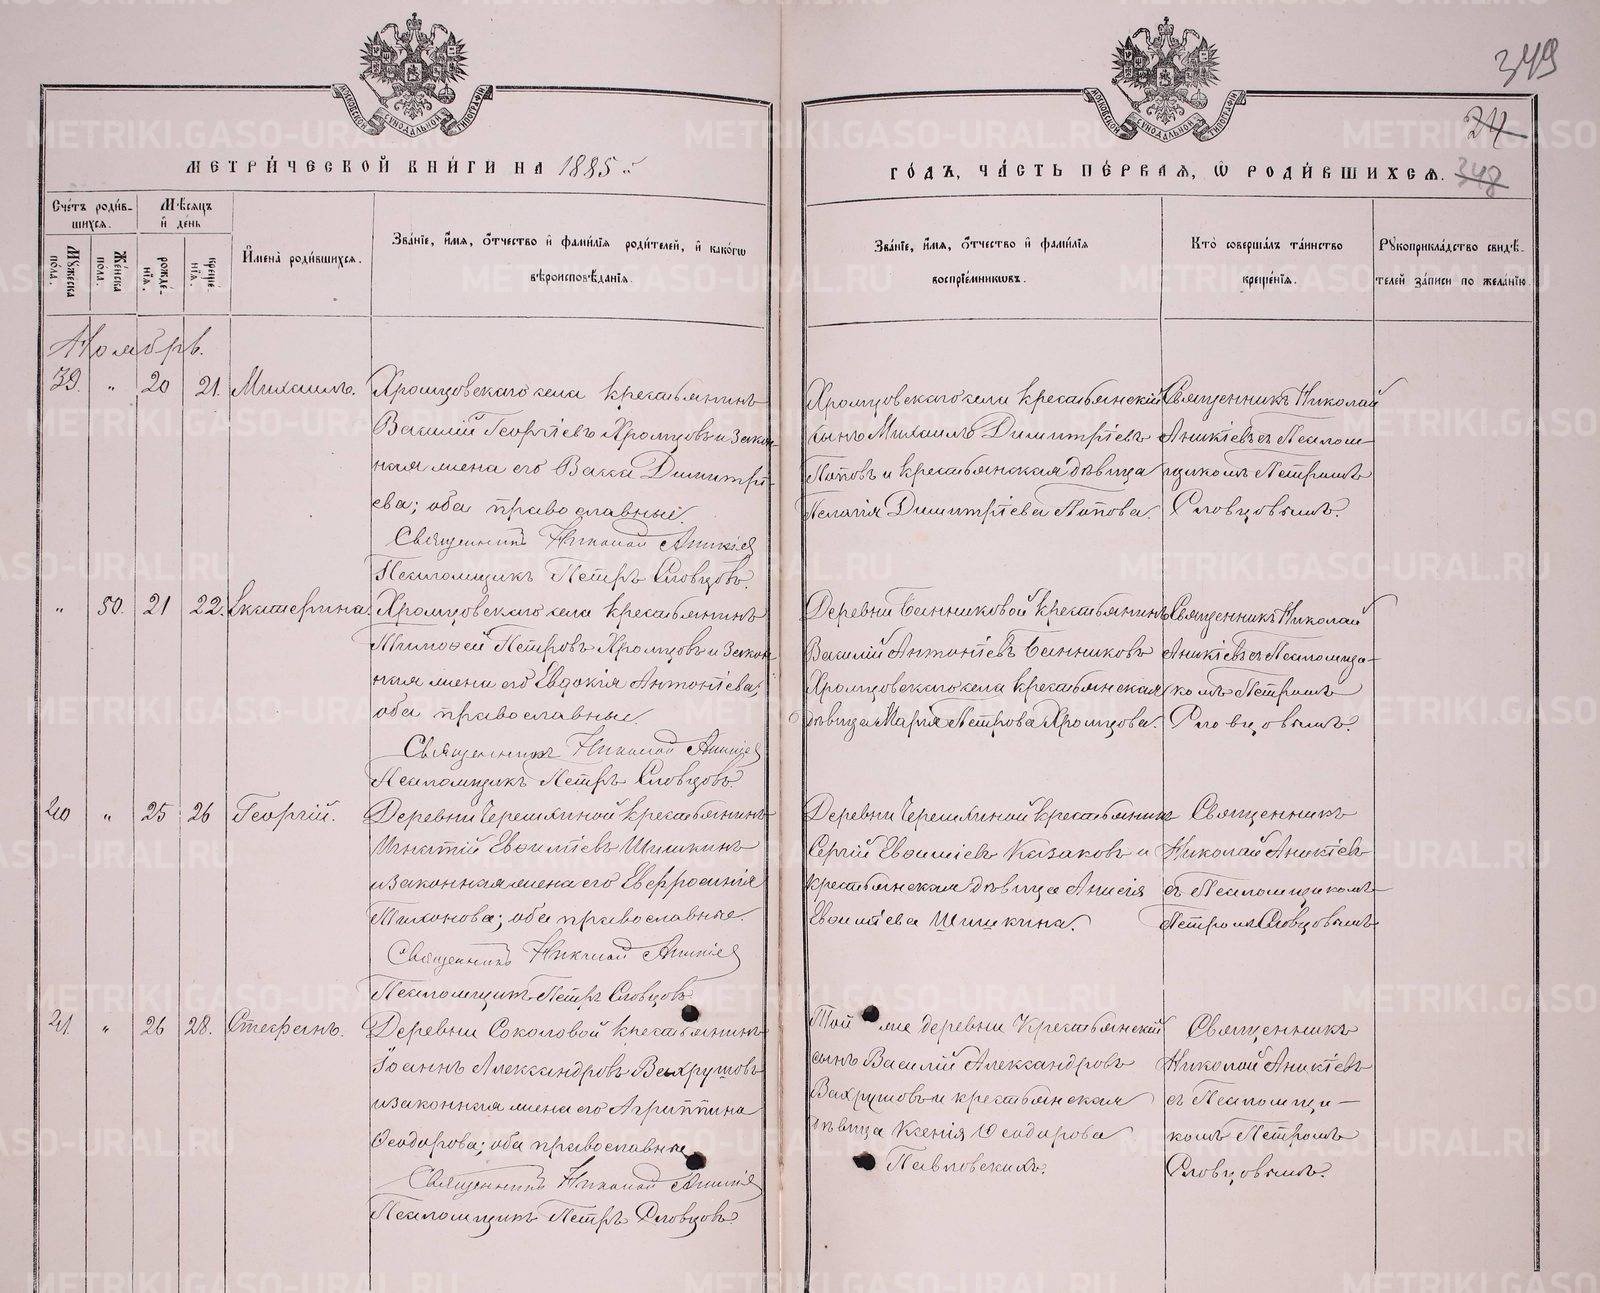 349
24
348
МЕТРИ́ЧЕСКОЙ КНИ́ГИ НА 1885 й
ГО́ДЪ, ЧА́СТЬ ПЕ́РВАЯ, Ѡ РОДИ́ВШИХСѦ.
Сче́тъ роди́в-
шихсѧ.
Мѣ́сѧцъ
и҆ де́нь
Мꙋ́жеска по́ла.
Же́нска по́ла.
рожде́-
нїѧ.
креще́-
нїѧ.
И҆мена̀ роди́вшихсѧ.
Зва́нїе, и҆́мѧ, ѻ҆́тчество и҆ фами́лїѧ роди́телей, и҆ како́гѡ
вѣроисповѣ́данїѧ.
Зва́нїе, и҆́мѧ, ѻ҆́тчество и҆ фами́лїѧ
воспрїе́мникѡвъ.
Кто̀ соверша́лъ та́инство
креще́нїѧ.
Рꙋкоприкла́дство свидѣ́-
телей за́писи по жела́нїю.
Ноябрь.
39. " 20 21. Михаилъ.
Хромцовскаго села крестьянинъ
Василій Георгіевъ Хромцовъ и закон-
ная жена его Васса Димитрі-
ева; оба православные.
Священникъ Николай Аникіев
Псаломщикъ Петръ Словцовъ.
Хромцовскаго села крестьянскій
сынъ Михаилъ Димитріевъ
Поповъ и крестьянская дѣвица
Пелагія Димитріева Попова.
Священникъ Николай
Аникіевъ съ Псалом-
щикомъ Петромъ
Словцовымъ.
" 50. 21 22. Екатерина.
Хромцовскаго села крестьянинъ
Тимоѳей Петровъ Хромцовъ и закон
ная жена его Евдокія Антоніева;
оба православные.
Священникъ Николай Аникіев
Псаломщикъ Петръ Словцовъ.
Деревни Банниковой крестьянинъ
Василій Антоніевъ Банниковъ
Хромцовскаго села крестьянская
дѣвица Марія Петрова Хромцова.
Священникъ Николай
Аникіевъ съ Псаломщи-
комъ Петромъ
Словцовымъ.
40 " 25 26 Георгій.
Деревни Черемхиной крестьянинъ
Игнатій Евѳиміевъ Шишкинъ
и законная жена его Евфросинія
Тихонова; оба православные.
Священникъ Николай Аникіев
Псаломщикъ Петръ Словцовъ
Деревни Черемхиной крестьянинъ
Сергій Евѳиміевъ Казаковъ и
крестьянская дѣвица Анисія
Евѳиміева Шишкина.
Священникъ
Николай Аникіевъ
съ Псаломщикомъ
Петромъ Словцовымъ
41 " 26 28. Стефанъ.
Деревни Соколовой крестьянинъ
Іоаннъ Александровъ Вахрушовъ
и законная жена его Агриппина
Ѳеодорова; оба православные
Священникъ Николай Аникіев
Псаломщикъ Петръ Словцовъ.
Той же деревни Крестьянскій
сынъ Василій Александровъ
Вахрушовъ и крестьянская
дѣвица Ксенія Ѳеодорова
Павловскихъ.
Священникъ
Николай Аникіевъ
съ Псаломщи-
комъ Петромъ
Словцовымъ.
METRIKI.GASO-URAL.RU